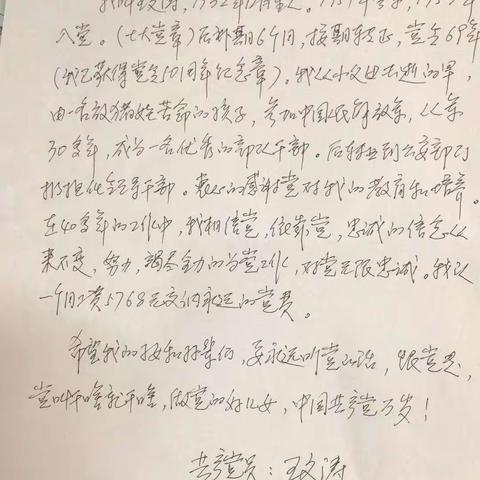 我叫王文涛，1932年12月生人。
入党。（七大党章）后补期6个月，按期转正，党令69年
（我已获得党令50周年纪念章）。我从小父母去逝的早，
由一名放猪娃苦命的孩子，参加中国人民解放军，从军
30多年，成为一名优秀的部队干部。后转业到交部门
担任领导干部。衷心的感谢党对我的教育和培养。
在40多年的工作中，我相信党，依靠党，忠诚的信念从
来不变，努力，竭尽全力的为党工作，对党无限忠诚。我以
一个月工资5768元交纳永远的党费。
希望我的子女和孙辈们，要永远听党的话，跟党走，
党叫干啥就干啥，做党的好儿女，中国共产党万岁！
共产党员：王文涛